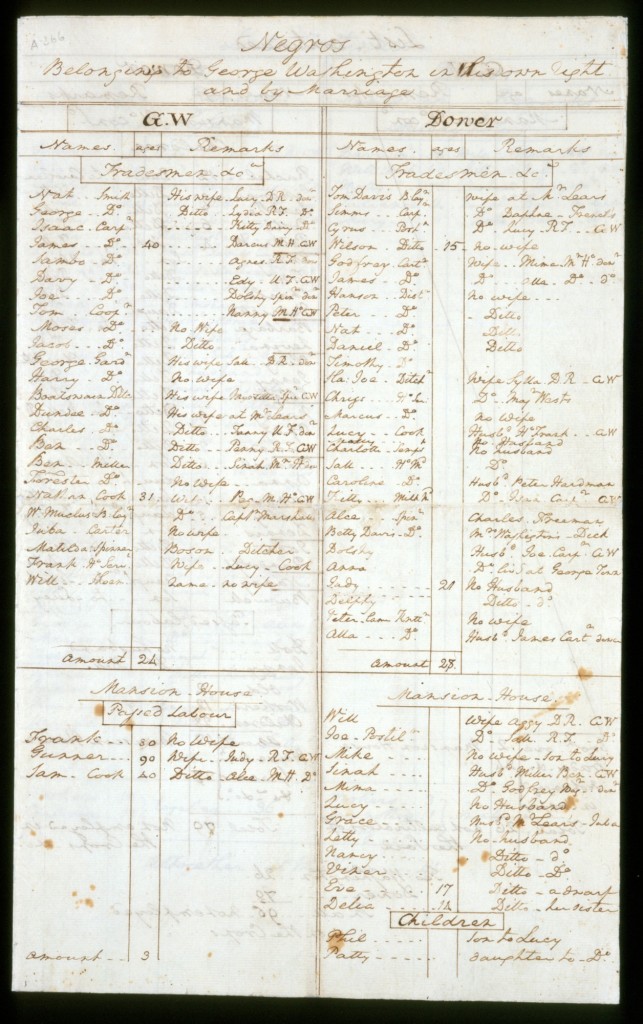 Negros
Belonging to George Washington in his own right
and by Marriage
G.W
Names. ages Remarks
Tradesmen &ca
Nat Smith His wife Lucy D.R. dow
George .. Do Ditto Lydia R.F. Do
Isaac. Carpr Kitty Dairy Do
James .. Do 40 Darcus M.H. GW
Sambo .. Do Agnes R.F. dow
Davy .. Do Edy U.F. GW
Joe .. Do Dolshy Spinr dow
Tom .. Coopr Nanny M.H. GW
Moses .. Do No Wife
Jacob .. Do Ditto
George Gardr His wife Sall .. D.R. dow
Harry .. Do No wife
Boatswain Ditchr His wife Myrtilla Spr GW
Dundee .. Do His wife at Mr Lears
Charles .. Do Ditto .. Fanny U.F. dow
Ben .. Do Ditto .. Penny R.F. GW
Ben .. Miller Ditto .. Sinah Mn Ho dow
Forrester Do No wife
Nathan Cook 31 Wife .. Peg M.Ho GW
W. Muclus B.layr Do .. Captn Marshall
Juba .. Carter No wife
Matilda Spinner Boson .. Ditcher
Frank Ho Serv Wife .. Lucy .. Cook
Will .. Shoem lame no wife
Amount 24
Mansion House
Passed Labour
Frank 80 No Wife
Gunner 90 Wife .. Judy .. R.F. GW
Sam .. Cook 40 Ditto .. Alce .. M.H. Do
Amount 3
Dower
Names. ages Remarks
Tradesmen &ca
Tom Davis B.layr wife at Mr Lears
Simms .. Carpr Do Daphne .. French's
Cyrus .. Postn Do Lucy .. R.F. GW
Wilson .. Ditto 15 No wife
Godfrey .. Cartr Wife .. Mima Mn Ho dow
James .. Do Do .. Alla .. Do .. do
Hanson .. Distr No wife
Peter .. Do Ditto
Nat .. Do Ditto
Daniel .. Do Ditto
Timothy .. Do
Ha: Joe .. Ditchr Wife Sylla D.R. GW
Chriss .. Ho Sert Do .. Majr Wests
Marcus .. Do No Wife
Lucy .. Cook Husbd Ho Frank .. GW
No Husband
Charlotte .. Sempsr No husband
Sall .. Ho Md Do
Caroline .. Do Husbd Peter Hardman
Kitty .. Milk Md Do .. Isaac Carpr GW
Alce .. Spinr Charles Freeman
Betty Davis .. Do Mrs Washington's Dick
Dolshy Husbd Joe Carpr GW
Anna Do livs at George Town
Judy 21 No Husband
Delphy Ditto .. do
Peter .. Lame Knittr No wife
Alla .. Do Husbd James Cartr dower
Amount 28
Mansion House
Will Wife Aggy D.R. GW
Joe .. Postiln Do Sall .. R.F. Do
Mike No wife .. Son to Lucy
Sinah Husbd Miller Ben .. GW
Mima Do Godfrey dow
Lucy No Husband
Grace Husbd Mr Lears .. Juba
Letty No husband
Nancy Ditto .. do
Viner Ditto .. Do
Eve 17 Ditto .. a dwarf
Delia 14 Ditto .. her sister
Children
Phil Son to Lucy
Patty daughter to .. Do